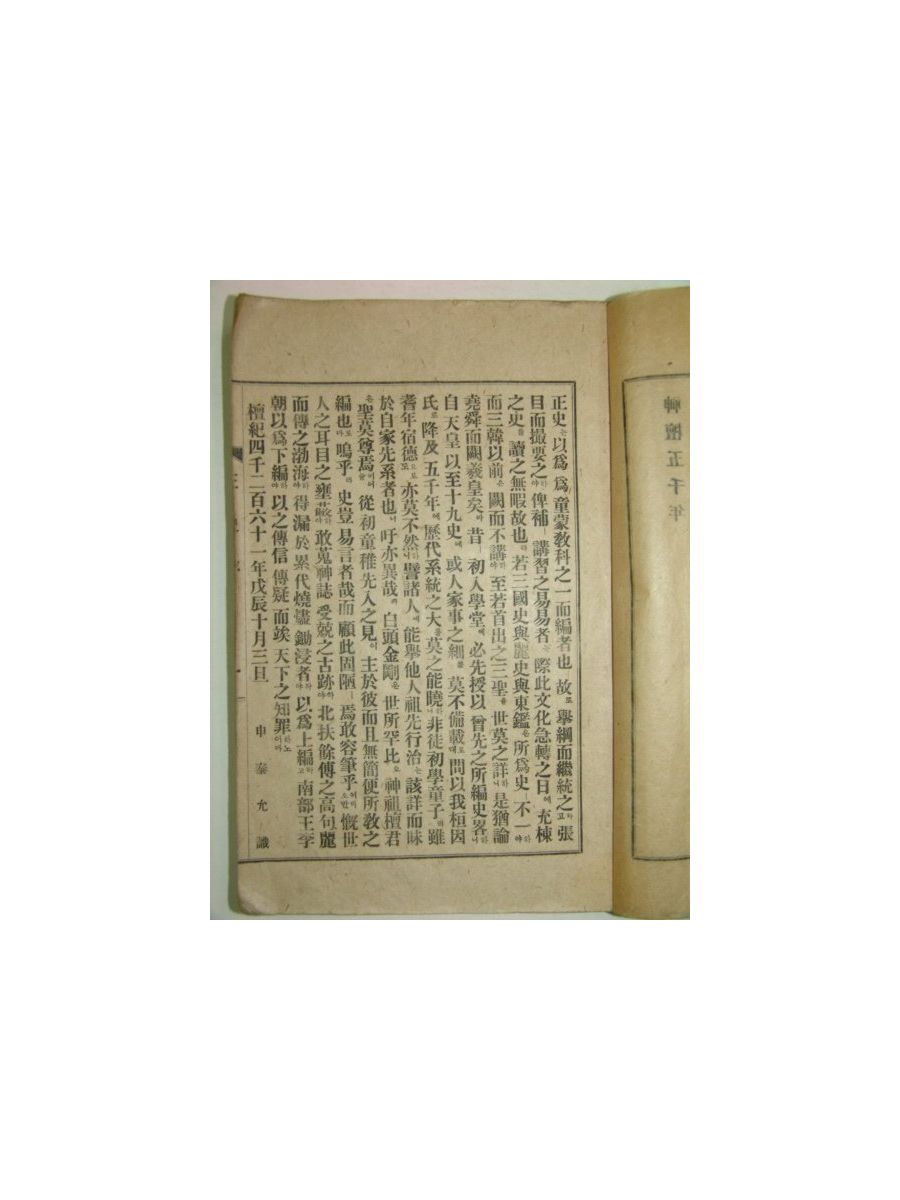 神檀五千年
正史는以爲爲童蒙敎科之一而編者也故로擧綱而繼統之하고張
目而撮要之하야俾補講習之易易者는際此文化急轉之日에充棟
之史를讀之無暇故也라若三國史與麗史與東鑑은所爲史不一하야
而三韓以前은闕而不講하야至若首出之三聖을世莫之詳하니是猶論
堯舜而闕羲皇矣라昔ㅣ初入學堂에必先授以曾先之所編史畧하니
自天皇以至十九史에或人家事之細를莫不備載로대問以我桓因
氏로降及五千年에歷代系統之大를莫之能曉하니非徒初學童子라雖
耆年宿德으로도亦莫不然하니譬諸人에能擧他人祖先行治는該詳而昧
於自家先系者也니吁亦異哉라白頭金剛은世所罕比오神祖檀君
은聖莫尊焉이어늘從初童稚先入之見이主於彼而且無簡便所敎之
編也로다嗚乎라史豈易言者哉而顧此固陋ㅣ焉敢容筆乎리오만慨世
人之耳目之壅蔽하야敢蒐神誌受兢之古跡하야北扶餘傳之高句麗
而傳之渤海하야得漏於累代燒燼鋤浸者하야以爲上編하고南部王李
朝以爲下編하야以之傳信傳疑而竢天下之知罪하노이다
檀紀四千二百六十一年戊辰十月三日 申泰允識